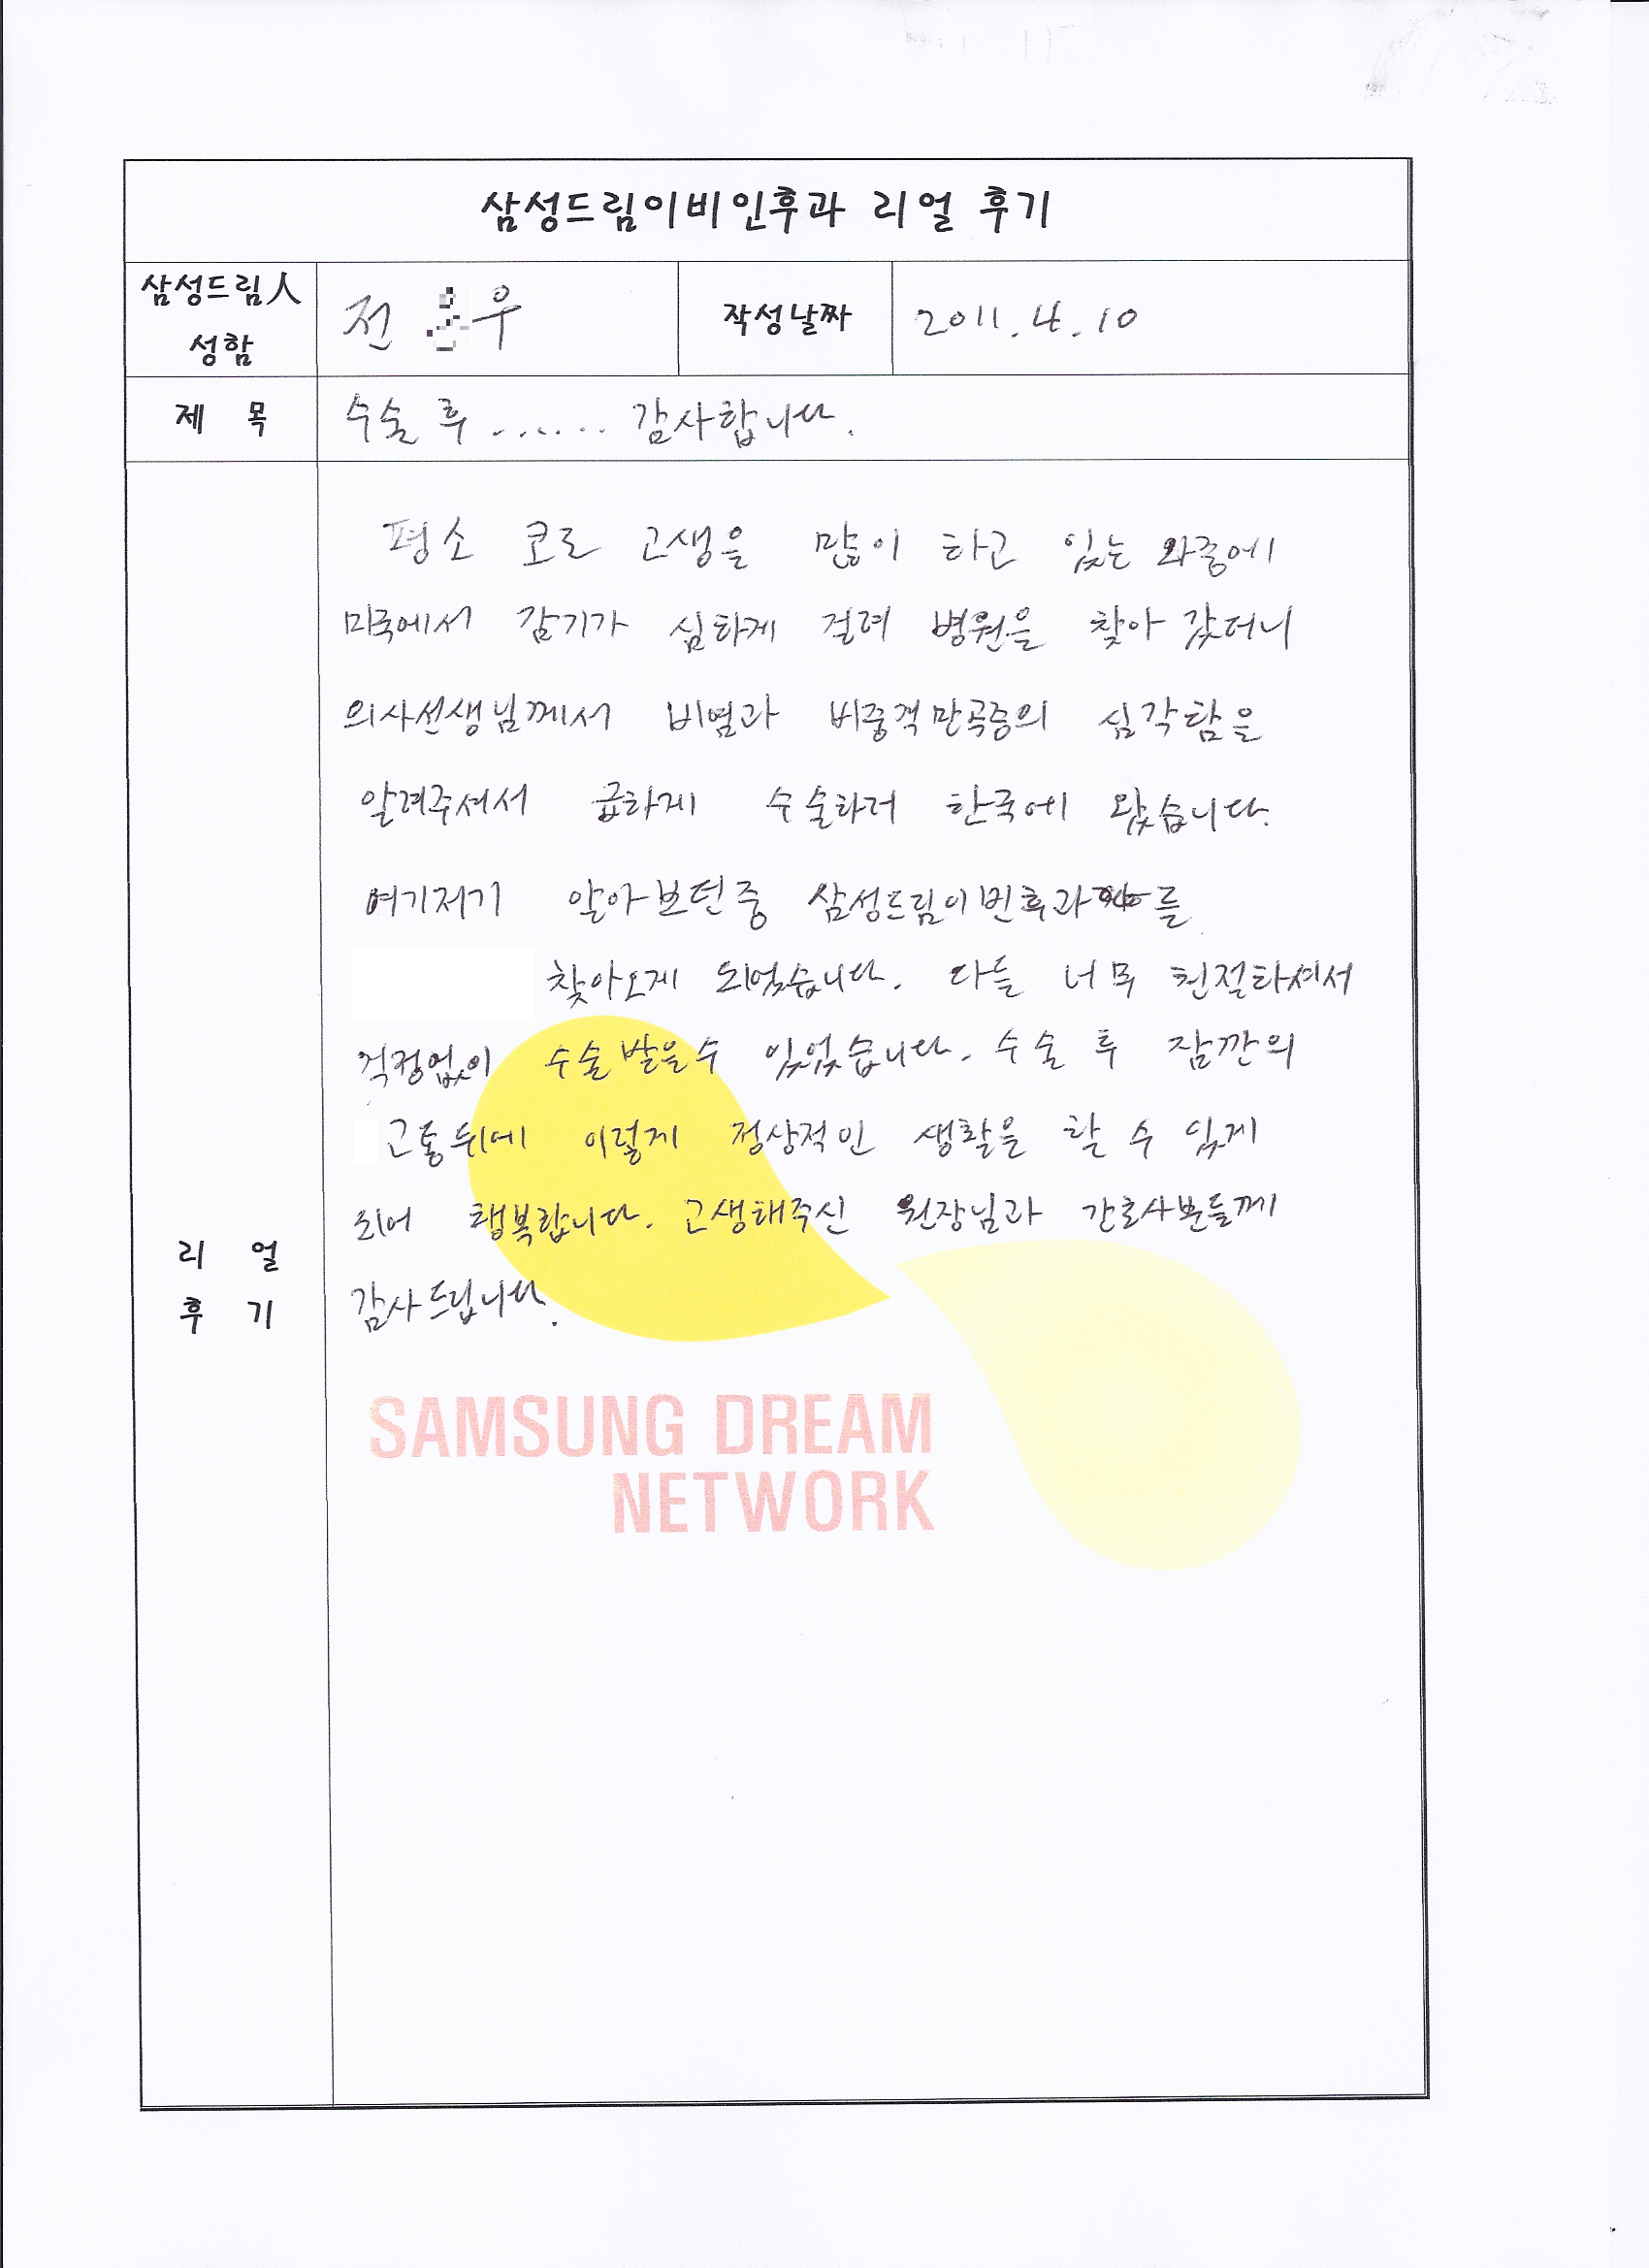 삼성드림이비인후과 리얼 후기
삼성드림人
성함
전 우
작성날짜
2011. 4. 10
제 목
수술 후 ....... 감사합니다.
평소 코로 고생을 많이 하고 있는 와중에
미국에서 감기가 심하게 걸려 병원을 찾아 갔더니
의사선생님께서 비염과 비중격만곡증의 심각함을
알려주셔서 급하게 수술하러 한국에 왔습니다.
여기저기 알아보던중 삼성드림이빈후과를
찾아오게 되었습니다. 다들 너무 친절하셔서
걱정없이 수술받을수 있었습니다. 수술 후 잠깐의
고통뒤에 이렇게 정상적인 생활을 할 수 있게
되어 행복합니다. 고생해주신 원장님과 간호사분들께
감사드립니다.
리 얼
후 기
SAMSUNG DREAM
NETWORK